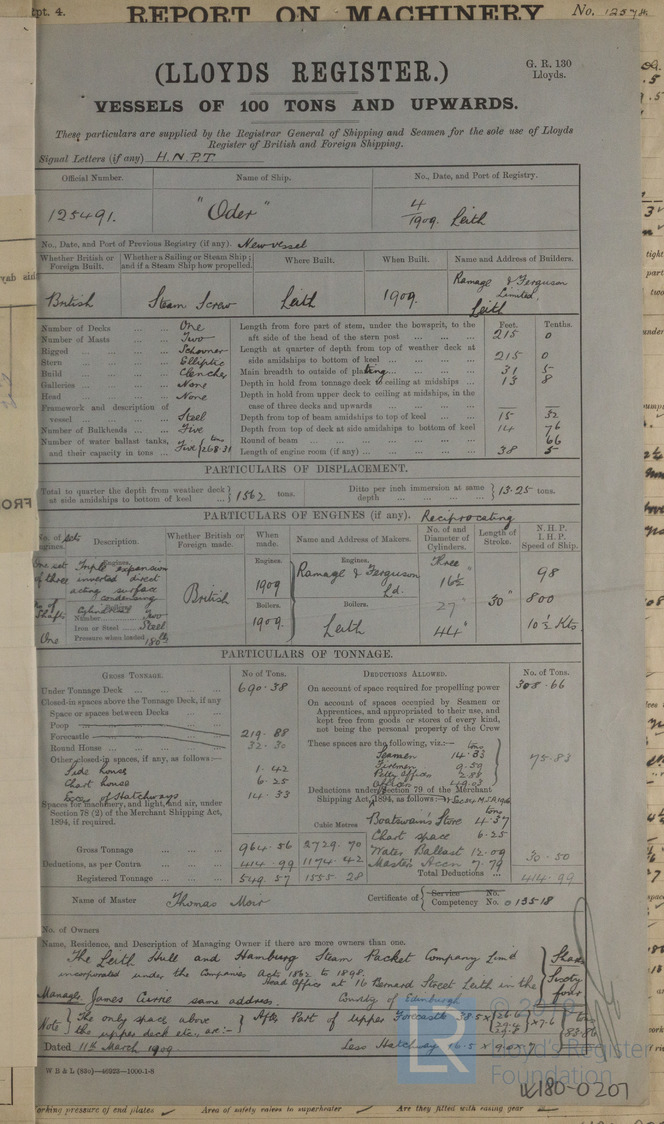 Rpt. 4. REPORT ON MACHINERY No. 12574
(LLOYDS REGISTER.)
G. R. 130
Lloyds.
VESSELS OF 100 TONS AND UPWARDS.
These particulars are supplied by the Registrar General of Shipping and Seamen for the sole use of Lloyds
Register of British and Foreign Shipping.
Signal Letters (if any) H.N.P.T.
Official Number. Name of Ship. No., Date, and Port of Registry.
125491. "Oder" 4/1909. Leith
No., Date, and Port of Previous Registry (if any). New vessel
Whether British or Foreign Built. Whether a Sailing or Steam Ship; and if a Steam Ship how propelled. Where Built. When Built. Name and Address of Builders.
British Steam Screw Leith 1909. Ramage & Ferguson Limited. Leith
Number of Decks One
Number of Masts Two
Rigged Schooner
Stern Elliptic
Build Clencher
Galleries None
Head None
Framework and description of vessel Steel
Number of Bulkheads Five
Number of water ballast tanks, and their capacity in tons Five 268.31 tons
Feet. Tenths.
Length from fore part of stem, under the bowsprit, to the aft side of the head of the stern post 215 0
Length at quarter of depth from top of weather deck at side amidships to bottom of keel 215 0
Main breadth to outside of plating 31 5
Depth in hold from tonnage deck to ceiling at midships 13 8
Depth in hold from upper deck to ceiling at midships, in the case of three decks and upwards —
Depth from top of beam amidships to top of keel 15 32
Depth from top of deck at side amidships to bottom of keel 14 76
Round of beam 66
Length of engine room (if any) 38 5
PARTICULARS OF DISPLACEMENT.
Total to quarter the depth from weather deck at side amidships to bottom of keel 1562 tons. Ditto per inch immersion at same depth 13.25 tons.
PARTICULARS OF ENGINES (if any). Reciprocating
No. of sets Engines. Description. Whether British or Foreign made. When made. Name and Address of Makers. No. of and Diameter of Cylinders. Length of Stroke. N. H. P. I. H. P. Speed of Ship.
One set of three Engines. Triple expansion inverted direct acting surface condensing
British
Engines. 1909
Boilers. 1909.
Engines. Ramage & Ferguson Ld.
Boilers. Leith
Three 16½ 27" 44"
30"
98
800
10½ Kts.
No. of Shafts One
Cylindrical
Number Two
Iron or Steel Steel
Pressure when loaded 180 lb
PARTICULARS OF TONNAGE.
GROSS TONNAGE. No of Tons. DEDUCTIONS ALLOWED. No. of Tons.
Under Tonnage Deck 690.38
Closed-in spaces above the Tonnage Deck, if any
Space or spaces between Decks
Poop
Forecastle 219.88
Round House 32.30
Other closed-in spaces, if any, as follows:—
Side house 1.42
Chart house 6.25
Excess of Hatchways 14.33
Spaces for machinery, and light, and air, under Section 78 (2) of the Merchant Shipping Act, 1894, if required.
Cubic Metres
Gross Tonnage 964.56 2729.70
Deductions, as per Contra 414.99 1174.42
Registered Tonnage 549.57 1555.28
On account of space required for propelling power 308.66
On account of spaces occupied by Seamen or Apprentices, and appropriated to their use, and kept free from goods or stores of every kind, not being the personal property of the Crew
These spaces are the following, viz.:— tons
Seamen 14.33
Firemen 9.59
Petty officers 2.88
Officers 49.03
75.83
Deductions under Section 79 of the Merchant Shipping Act, 1894, as follows:—
Boatswain's Store 4.37
Chart space 6.25
Water Ballast 12.09
Master's Accn 7.79
30.50
Total Deductions 414.99
Name of Master Thomas Moir Certificate of Service Competency No. 013518
No. of Owners
Name, Residence, and Description of Managing Owner if there are more owners than one.
The Leith Hull and Hamburg Steam Packet Company Limd
incorporated under the Companies Acts 1862 to 1898.
Head Office at 16 Bernard Street Leith in the
Manager James Currie same address. County of Edinburgh
Shares Sixty four
Note The only space above the upper deck etc., are:— After Part of Upper Forecastle 38.5 × 26.6 29.4 29.8 × 7.6 tons 83.86
Dated 11th March 1909. Less Hatchway
W B & L (890)—40223—1000-1-8
© 2019
Lloyd's Register
Foundation
W180-0207
working pressure of end plates Area of safety valves to superheater Are they fitted with easing gear